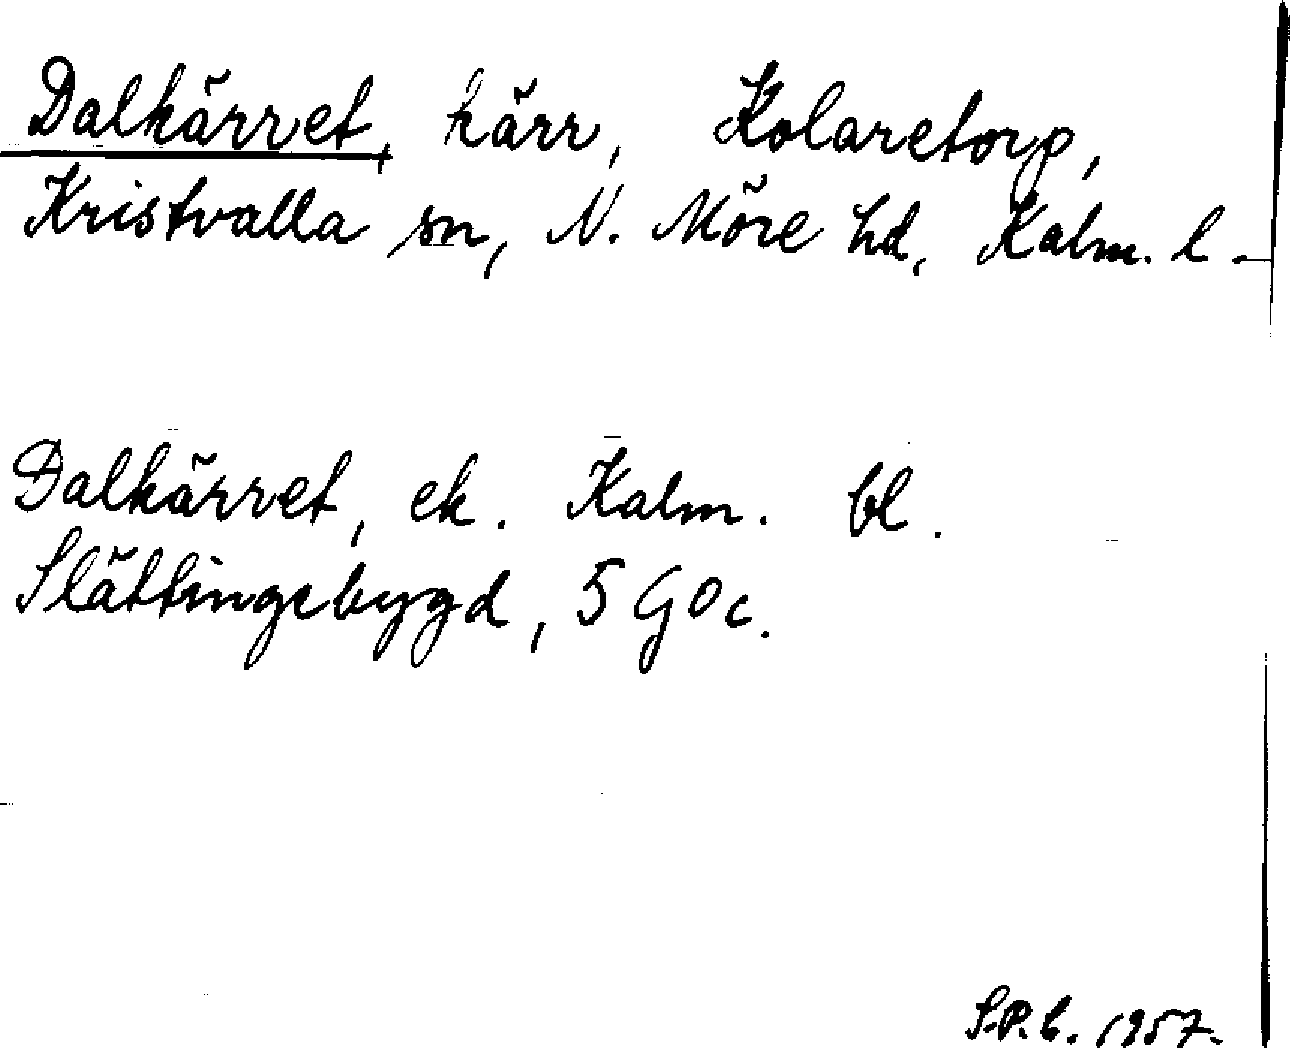 Dalkärret, kärr, Kolaretorp,
Kristvalla sn, N. Möre hd, Kalm. l.
Dalkärret, ek. Kalm. bl.
Slättingebygd, 5 G 0 c.
S.P.b. 1957.